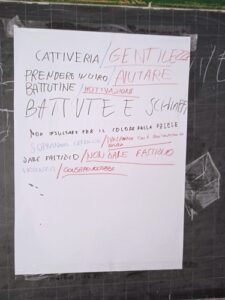 CATTIVERIA/GENTILEZZA
PRENDERE IN GIRO/AIUTARE
BATTUTINE/MOTIVAZIONI
BATTUTE E SCHIAFFI
NON INSULTARE PER IL COLORE DELLA PELLE
SOPRANNOMI
DARE FASTIDIO/NON DARE FASTIDIO
VIOLENZA/